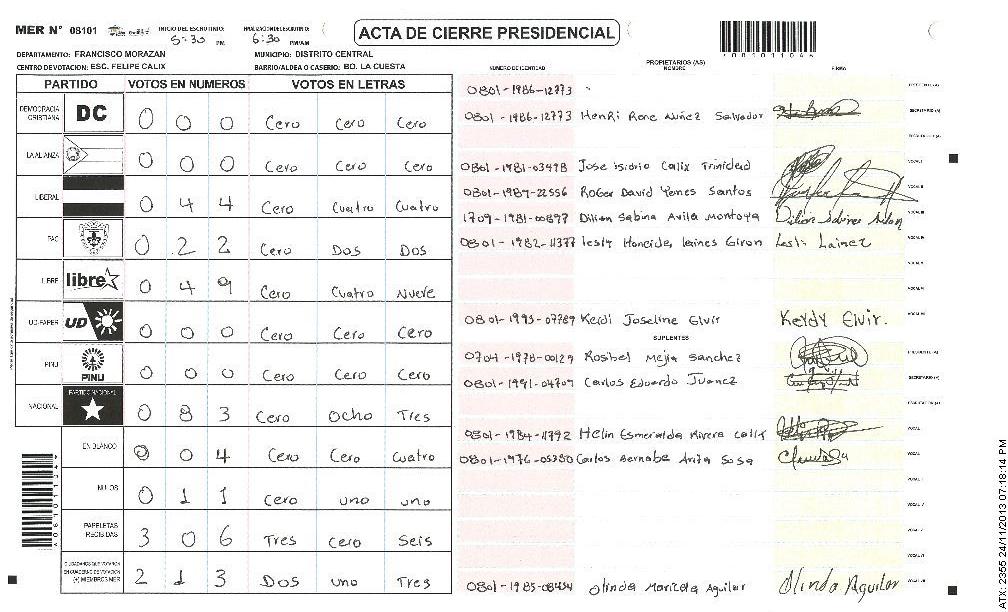 MER N° 08101 INICIO DEL ESCRUTINIO: 5:30 PM FINALIZACION DEL ESCRUTINIO: 6:30 PM/AM
ACTA DE CIERRE PRESIDENCIAL
DEPARTAMENTO: FRANCISCO MORAZAN MUNICIPIO: DISTRITO CENTRAL
CENTRO DE VOTACION: ESC. FELIPE CALIX BARRIO/ALDEA O CASERIO: BO. LA CUESTA
NUMERO DE IDENTIDAD PROPIETARIOS (AS) NOMBRE FIRMA
PARTIDO VOTOS EN NUMEROS VOTOS EN LETRAS
DEMOCRACIA CRISTIANA DC 0 0 0 Cero Cero Cero
LA ALIANZA 0 0 0 Cero Cero Cero
LIBERAL 0 4 4 Cero Cuatro Cuatro
PAC 0 2 2 Cero Dos Dos
LIBRE libre 0 4 9 Cero Cuatro Nueve
UD-FAPER UD 0 0 0 Cero Cero Cero
PINU PINU 0 0 0 Cero Cero Cero
NACIONAL PARTIDO NACIONAL 0 8 3 Cero Ocho Tres
EN BLANCO 0 0 4 Cero Cero Cuatro
NULOS 0 1 1 Cero uno uno
PAPELETAS RECIBIDAS 3 0 6 Tres Cero Seis
CIUDADANOS QUE VOTARON EN CUADERNO DE VOTACION (+) MIEMBROS MER 2 1 3 Dos uno Tres
0801-1986-12773 PRESIDENTE (A)
0801-1986-12773 Henri Rone Nuñez Salvador SECRETARIO (A)
ESCRUTADOR (A)
0801-1981-03498 Jose isidrio Calix Trinidad VOCAL I
0801-1987-22556 Roger David Yenes Santos VOCAL II
1709-1981-00897 Dilian Sabina Avila Montoya VOCAL III
0801-1982-11377 Lesly Lainez VOCAL IV
VOCAL V
VOCAL VI
0801-1995-07789 Kerdi Joseline Elvir Keydy Elvir. VOCAL VII
SUPLENTES
0704-1978-00129 Rosbel Mejia Sanchez PRESIDENTE (A)
0801-1991-04707 Carlos Eduardo Juanez SECRETARIO (A)
ESCRUTADOR (A)
0801-1984-11792 Helin Esmeralda Rivera Calix VOCAL I
0801-1976-05380 Carlos Bernabe Avila Sosa VOCAL
0801-1985-08454 Olinda Maricela Aguilar Olinda Aguilar VOCAL VII
ATX: 2355 24/11/2013 07:18:14 PM